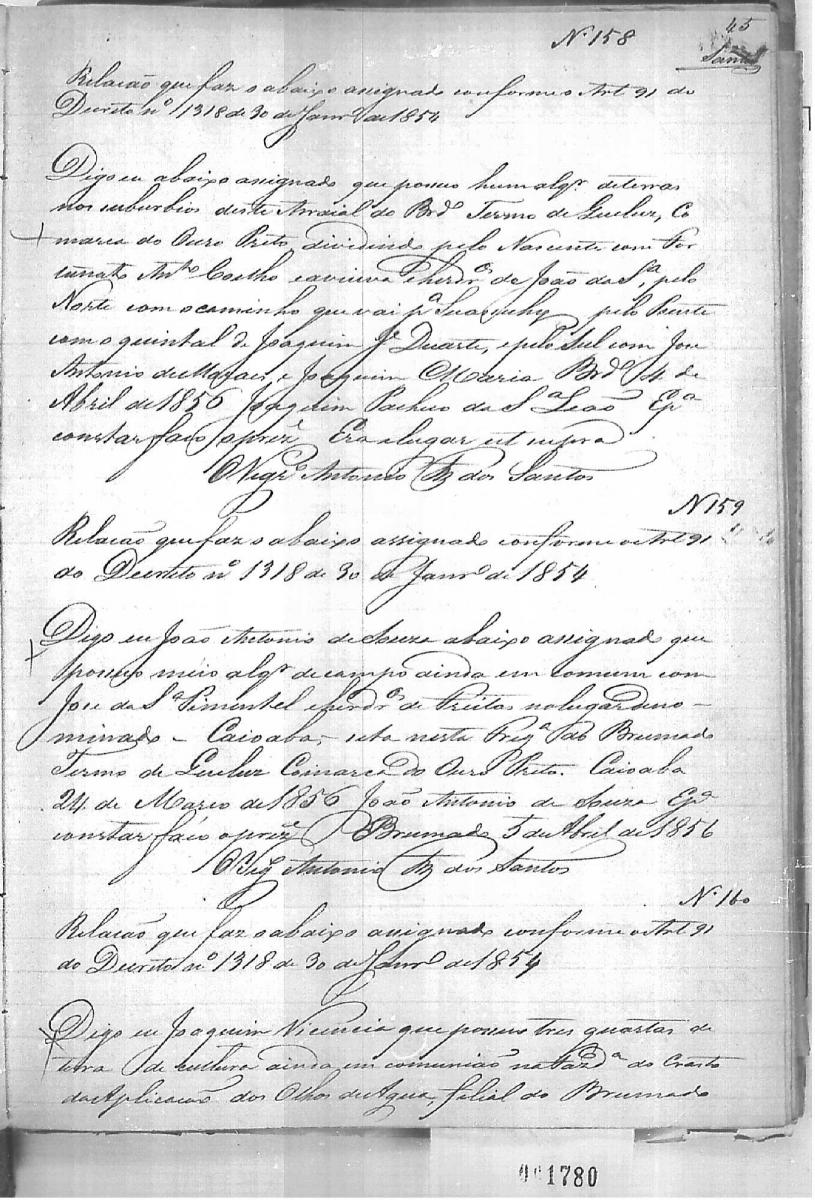 45
Nº 158
Santos
Relação que faz o abaixo assignado conforme o Art 91 do
Decreto nº 1318 de 30 de Janrº de 1854
Digo eu abaixo assignado que possuo hum alqr de terras
nos suburbios deste Arraial do Brdº Termo de Queluz, Co
marca do Ouro Preto, dividindo pelo Nascente com For
tunato Antº Coelho e a viuva e herdrºs de João da Sª, pelo
Norte com o caminho que vai pª Suassuhy pelo Poente
com o quintal de Joaquim Je Duarte, e pelo Sul com Jose
Antonio de Moraes, e Joaquim Maria Brdº 4 de
Abril de 1856 Joaquim Pacheco da Sª Leão Epª
constar faço o preze Era e lugar ut supra
O Vigrº Antonio dos Santos
Nº 159
Relação que faz o abaixo assignado conforme o Art 91
do Decreto nº 1318 de 30 de Janrº de 1854
Digo eu João Antonio de Souza abaixo assignado que
possuo meio alqr de campo ainda em comum com
Jose da Sª Pimentel e herdrºs de Freitas no lugar deno-
minado - Caioaba, - nesta Fregª do Brumado
Termo de Queluz Comarca do Ouro Preto. Caioaba
24 de Março de 1856 João Antonio de Souza Epª
constar faço o preze Brumado 5 de Abril de 1856
O Vigº Antonio dos Santos
Nº 160
Relação que faz o abaixo assignado conforme o Art 91
do Decreto nº 1318 de 30 de Janrº de 1854
Digo eu Joaquim Vicencia que possuo tres quartas de
terra de cultura ainda em comunião na Fazdª do Crasto
da Aplicação dos Olhos de Agua, filial do Brumado
001780